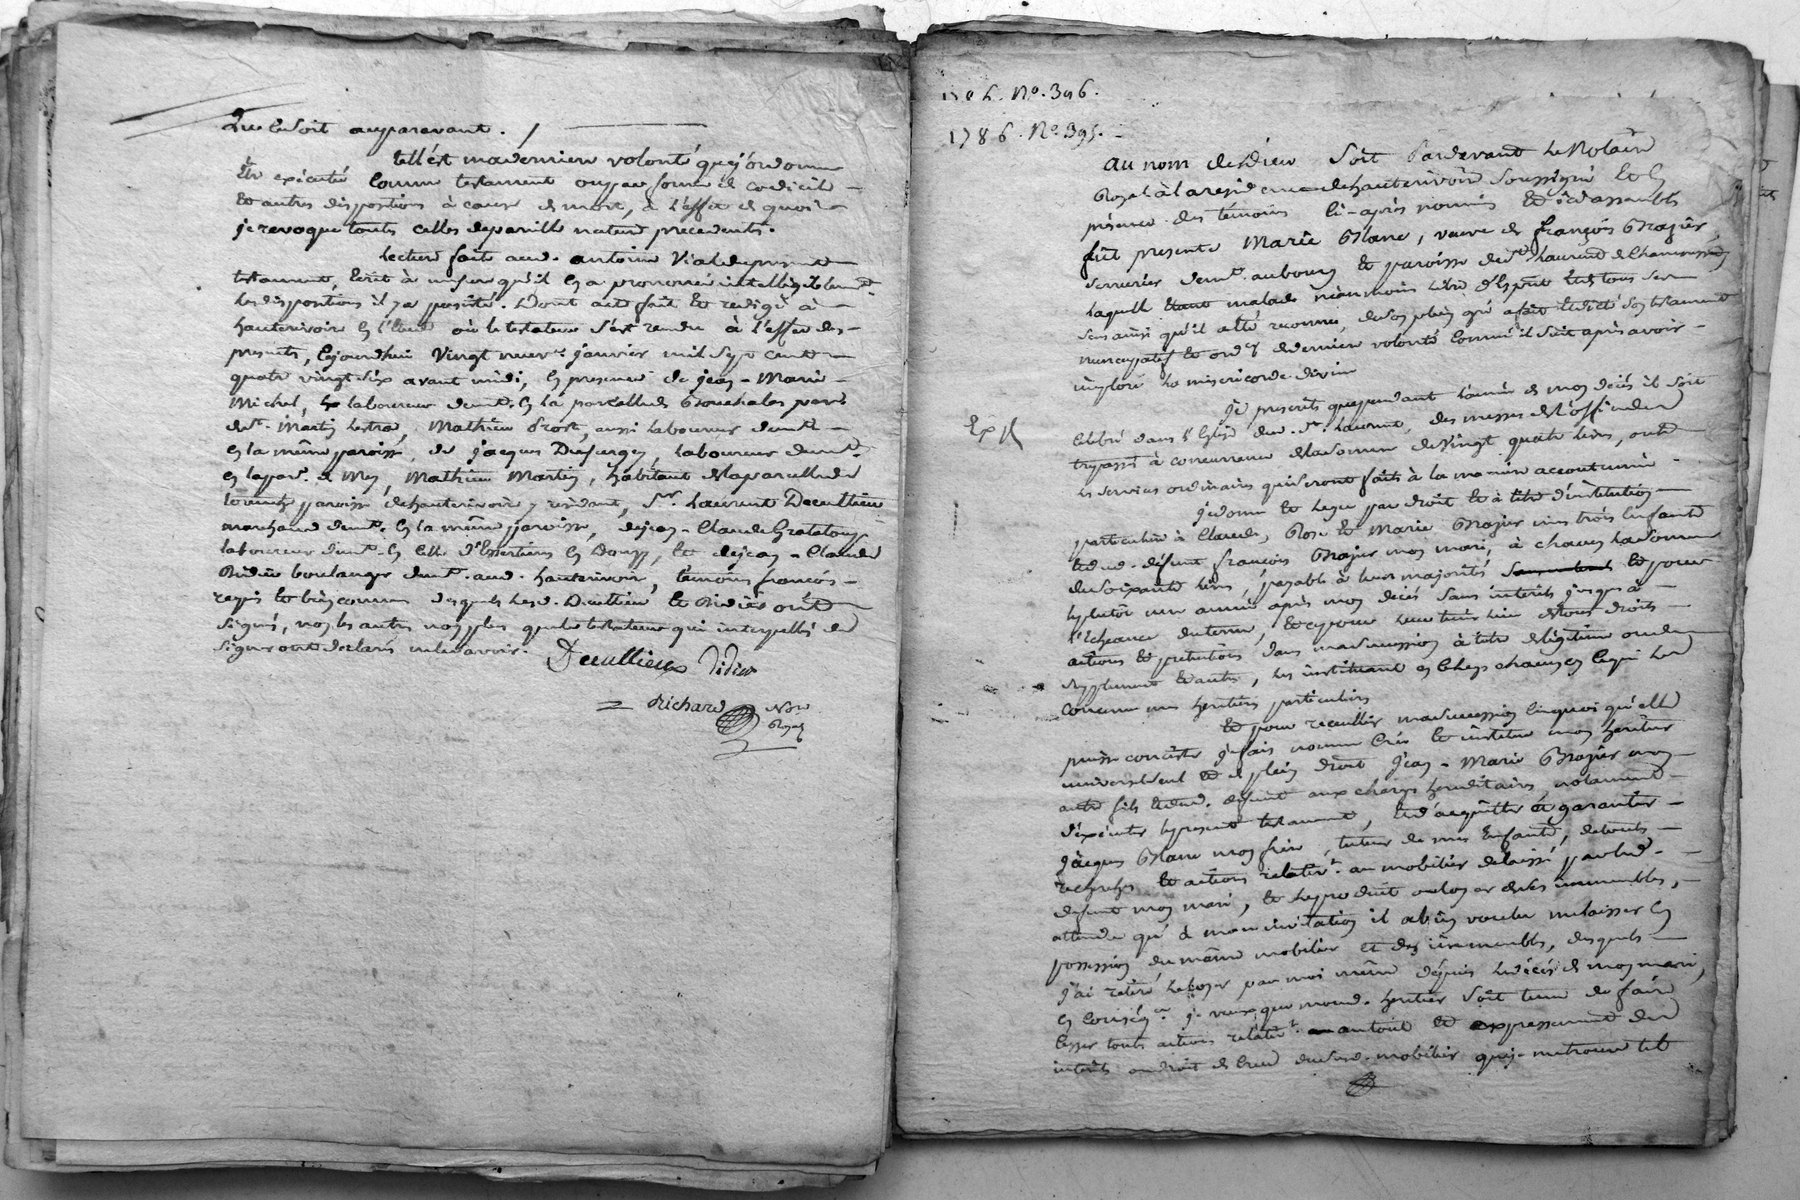 que ce soit auparavant. /
tell'est ma derniere volonté que j'ordonne
Etre exécuté comme testament ou par forme de codicile
et autres dispositions à cause de mort, à l'effet de quoi
je revoque toutes celles de pareille nature precedentes.
Lecture faite aud. antoine Vial du present
testament, écrit à mesure qu'il en a prononcé intelligiblement
les dispositions il y a persisté. Dont acte fait et redigé à
hauterivoire en l'étude où le testateur s'est rendu à l'effet des
presents, cejourdhui vingt neuf janvier mil sept cent
quatre vingt six avant midi, en presence de jean-Marie
Michel, laboureur demt. en la parcelle de par.
de st. Martin lestra, Mathieu aussi laboureur demt.
en la même paroisse, de jacques Duperger, laboureur demt.
en la par. de Mathieu Martin, habitant de la parcelle de
paroisse de hauterivoire y résidant, sr. Laurent Decultieu
marchand demt. en la même paroisse, de jean-Claude Grataloup
laboureur demt. en celle d'Essertines en Donzy, et de jean-Claude
Didier boulanger demt. aud. hauterivoire, témoins françois
requis et bien connus desquels lesd. Decultieu et Didier ont
signés, non les autres non plus que le testateur qui interpellés de
signer ont declaré ne le savoir. Decultieux Didier
Richard Nore
Royal
1786. No. 396.
1786. No. 395.
au nom de Dieu soit Pardevant le Notaire
Royal à la residence de hauterivoire soussigné et en
présence des témoins ci-après nommés et icy assemblés
fut presente Marie Blanc, veuve de françois Brazier,
serrurier demt. au bourg et paroisse de st. Laurent de Chamousset
laquelle étant malade néanmoins libre d'esprit et de tous ses
sens ainsi qu'il a été reconnu, de son plein gré a fait et dicté son testament
nuncupatif et ord. de derniere volonté comme il suit après avoir
imploré la misericorde divine
je prescris que pendant l'année de mon décès il soit
Exp
célébré dans l'Eglise dud. st. Laurent, des messes de l'office des
trepassés à concurrence de la somme de vingt quatre livres, outre
les services ordinaires qui seront faits à la maniere accoutumée.
je donne et legue par droit et à titre d'institution
particuliere à Claude, Rose et Marie Brazier mes trois Enfants
et dud. défunt françois Brazier mon mari, à chacun la somme
de soixante livres, payable à leur majorité et pour
le plutôt une année après mon decès sans interêts jusques à
l'Echeance du terme, et ce pour leur tenir lieu de tous droits
actions et pretentions dans ma succession à titre de légitime ou de
supplement et autres, les instituant en ce legs chacun en ce qui le
concerne mes heritiers particuliers
Et pour recueillir ma succession en quoi qu'elle
puisse consister je fais nomme crée et institue mon héritier
universel et de plein droit jean-Marie Brazier mon
autre fils et dud. defunt aux charges hereditaires notamment
d'exécuter le present testament, et d'acquitter et garantir
jacques Blanc mon frere, tuteur de mes Enfants, de toutes
recherches et actions relativt. au mobilier delaissé par led.
defunt mon mari, et le produit ou loyer de ses immeubles,
attendu qu'à mon invitation il a bien voulu me laisser en
possession du même mobilier et des immeubles, desquels
j'ai retiré le loyer par moi même depuis le décès de mon mari,
en conséqce. je veux que mond. heritier soit tenu de faire
cesser toutes actions relativt. à tout et expressement de
interêts ou droit de crue dud. mobilier qui se trouvera tel